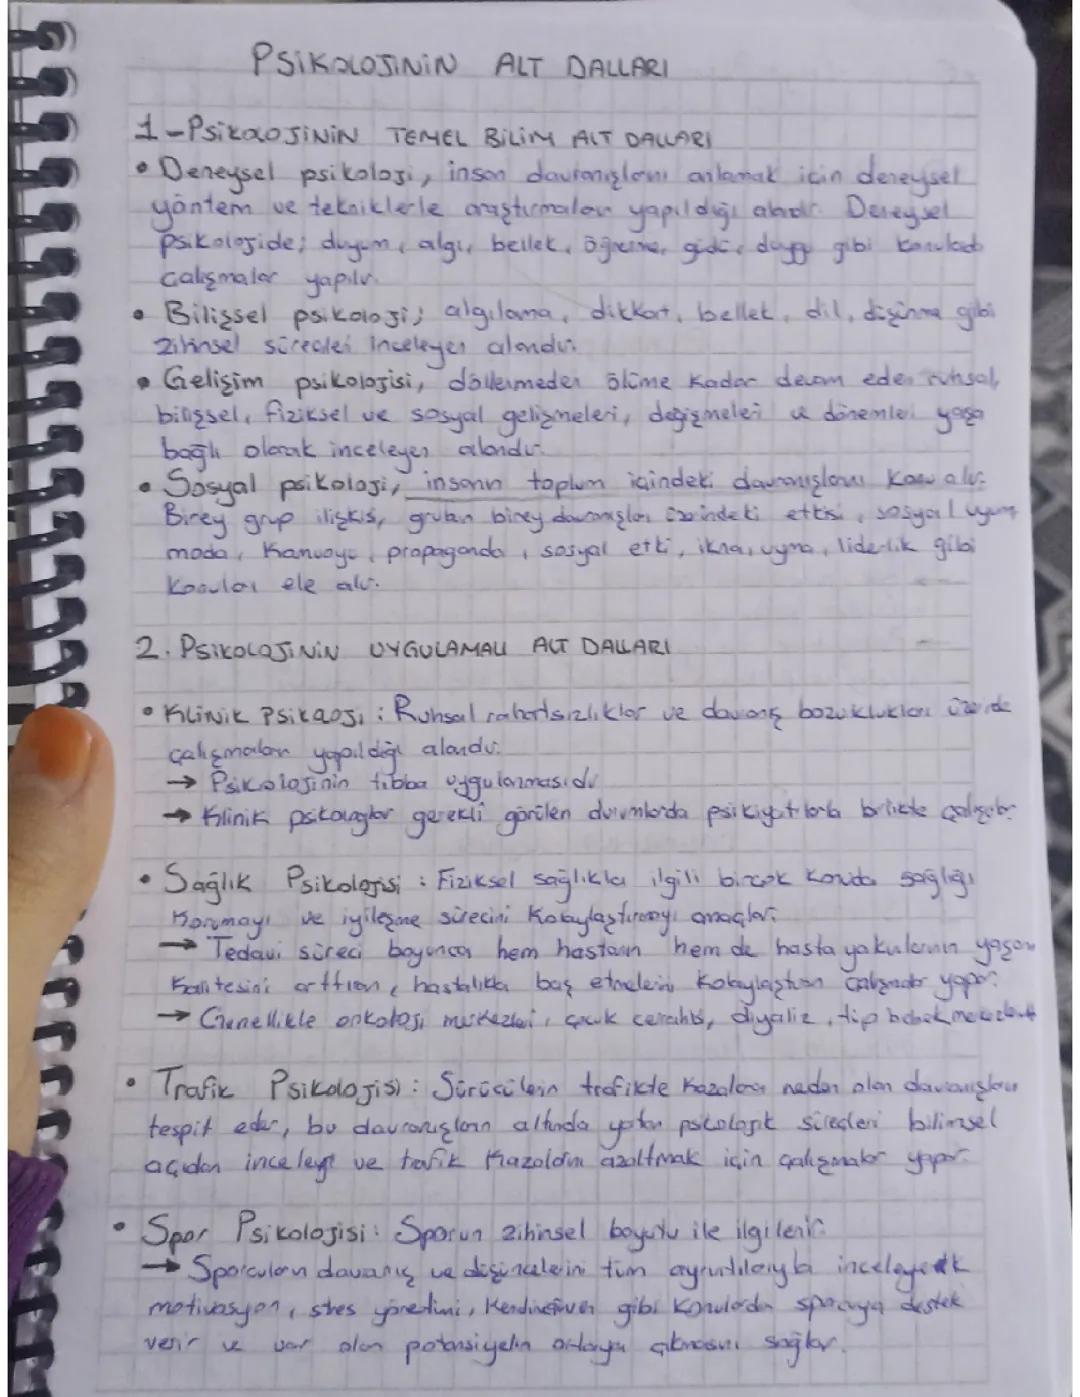 PSİKOLOJİNİN ALT DALLARI
1-PSİKOLOJİNİN TEMEL BİLİM ALT DALLARI
• Deneysel psikoloji, insan davranışlarını anlamak için deneysel
yöntem ve tekniklerle araştırmaların yapıldığı alandır. Deneysel
psikolojide; duyum, algı, bellek, öğrenme, güdü, duygu gibi konularda
çalışmalar yapılır.
• Bilişsel psikoloji; algılama, dikkat, bellek, dil, düşünme gibi
zihinsel süreçleri inceleyen alandır.
• Gelişim psikolojisi, döllenmeden ölüme kadar devam eden ruhsal,
bilişsel, fiziksel ve sosyal gelişmeleri, değişmeleri ve dönemleri yaşa
bağlı olarak inceleyen alandır.
• Sosyal psikoloji, insanın toplum içindeki davranışlarını konu alır.
Birey grup ilişkisi, grubun birey davranışları üzerindeki etkisi, sosyal uyum,
moda, kamuoyu, propaganda, sosyal etki, ikna, uyma, liderlik gibi
konuları ele alır.
2. PSİKOLOJİNİN UYGULAMALI ALT DALLARI
• Klinik Psikoloji : Ruhsal rahatsızlıklar ve davranış bozuklukları üzerinde
çalışmaların yapıldığı alandır.
→ Psikolojinin tıbba uygulanmasıdır
→ Klinik psikologlar gerekli görülen durumlarda psikiyatrlarla birlikte çalışır.
• Sağlık Psikolojisi : Fiziksel sağlıkla ilgili birçok konuda sağlığı
korumayı ve iyileşme sürecini kolaylaştırmayı amaçlar.
→ Tedavi süreci boyunca hem hastanın hem de hasta yakınlarının yaşam
kalitesini arttıran, hastalıkla baş etmelerini kolaylaştıran çalışmalar yapar.
→ Genellikle onkoloji merkezleri, çocuk cerrahisi, diyaliz, tüp bebek
• Trafik Psikolojisi : Sürücülerin trafikte kazalara neden olan davranışlarını
tespit eder, bu davranışların altında yatan psikolojik süreçleri bilimsel
açıdan inceler ve trafik kazalarını azaltmak için çalışmalar yapar.
• Spor Psikolojisi: Sporun zihinsel boyutu ile ilgilenir.
→ Sporcuların davranış ve düşüncelerini tüm ayrıntılarıyla inceleyerek
motivasyon, stres yönetimi, kendine güven gibi konularda sporcuya destek
verir ve var olan potansiyelin ortaya çıkmasını sağlar.